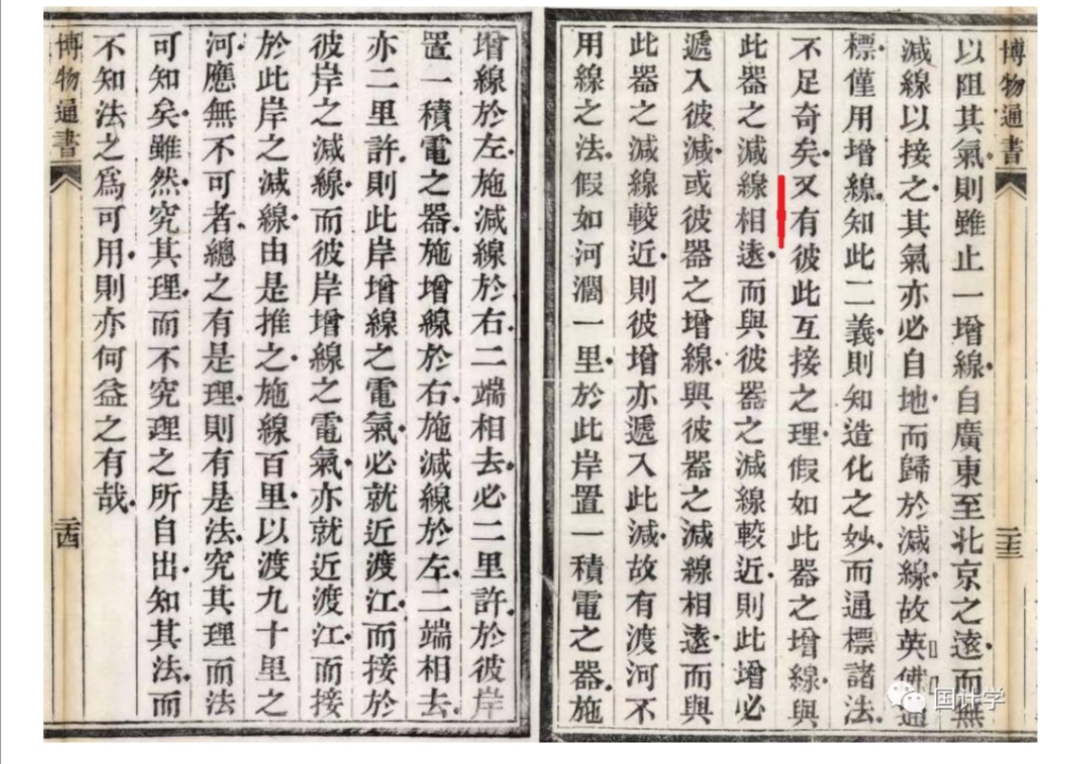 博物通書
以阻其氣則雖止一增線自廣東至北京之遠而無
減線以接之其氣亦必自地而歸於減線故英佛通
標僅用增線知此二義則知造化之妙而通標諸法
不足奇矣又有彼此互接之理假如此器之增線與
此器之減線相遠而與彼器之減線較近則此增必
遞入彼減或彼器之增線與彼器之減線相遠而與
此器之減線較近則彼增亦遞入此減故有渡河不
用線之法假如河濶一里於此岸置一積電之器施
二十三
增線於左施減線於右二端相去必二里許於彼岸
置一積電之器施增線於右施減線於左二端相去
亦二里許則此岸增線之電氣必就近渡江而接於
彼岸之減線而彼岸增線之電氣亦就近渡江而接
於此岸之減線由是推之施線百里以渡九十里之
河應無不可者總之有是理則有是法究其理而法
可知矣雖然究其理而不究理之所自出知其法而
不知法之爲可用則亦何益之有哉
博物通書
二十四
国计学